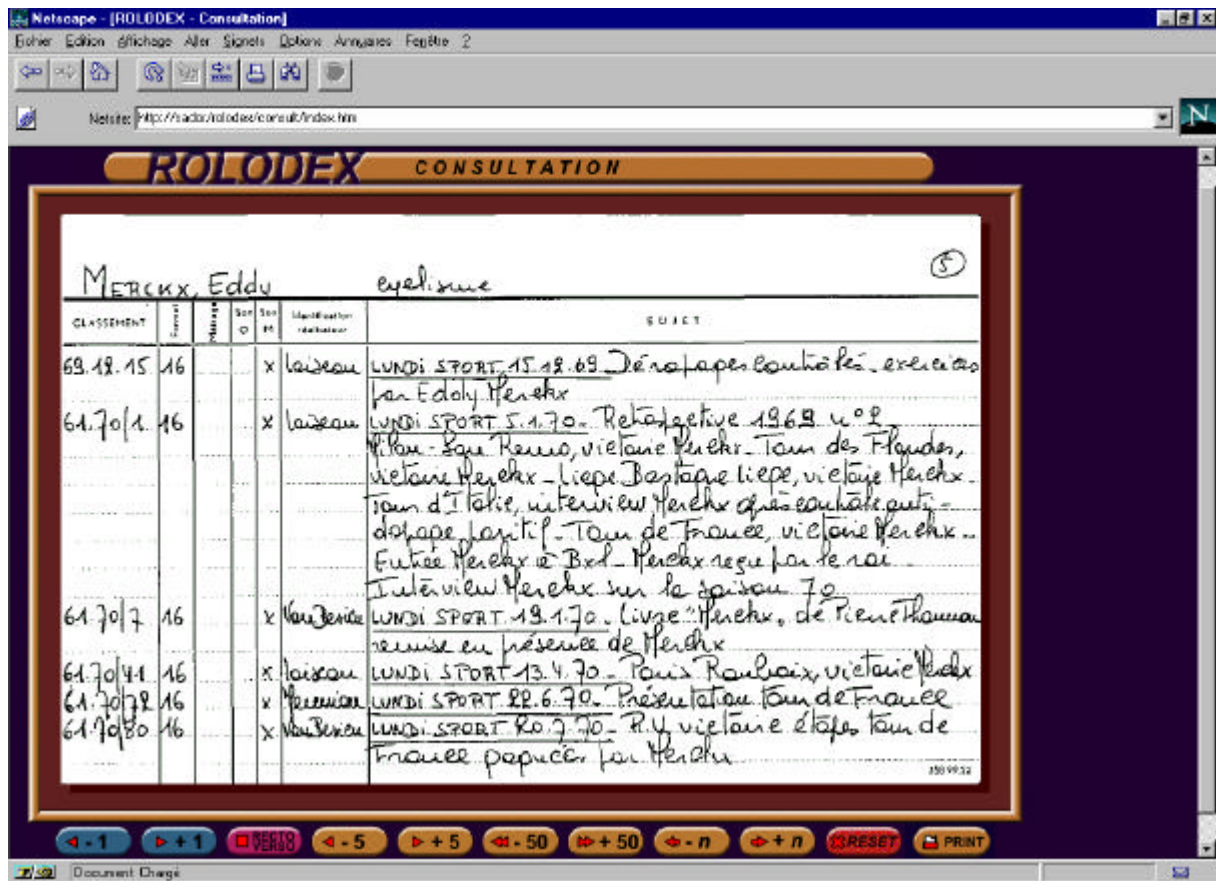 Netscape - [ROLODEX - Consultation]
Fichier Edition Affichage Aller Signets Options Annuaires Fenêtre ?
Netsite: http://sador/rolodex/consult/index.htm
N
ROLODEX CONSULTATION
5
MERCKX, Eddy cyclisme
CLASSEMENT Format Métrage Son O Son M Identification réalisateur SUJET
69.12.15 16 x Loiseau LUNDI SPORT 15.12.69 Dérapages contrôlés - exercices
par Eddy Merckx
61.70/1 16 x Loiseau LUNDI SPORT 5.1.70 - Rétrospective 1969 n° 2
Milan - San Remo, victoire Merckx - Tour des Flandres,
victoire Merckx - Liège Bastogne Liège, victoire Merckx -
Tour d'Italie, interview Merckx après contrôle anti-
dopage positif - Tour de France, victoire Merckx -
Entrée Merckx à Bxl - Merckx reçu par le roi
Interview Merckx sur la saison 70
61.70/7 16 x LUNDI SPORT 19.1.70 - Livre "Merckx" de Pierre Thonnon
remise en présence de Merckx
61.70/41 16 x Loiseau LUNDI SPORT 13.4.70 - Paris Roubaix, victoire Merckx
61.70/72 16 x LUNDI SPORT 22.6.70 - Présentation Tour de France
61.70/80 16 x LUNDI SPORT 20.7.70 - R.V. victoire étapes Tour de
France par Merckx
158 99.52
- 1 + 1 RECTO VERSO - 5 + 5 - 50 + 50 - n + n RESET PRINT
Document Chargé